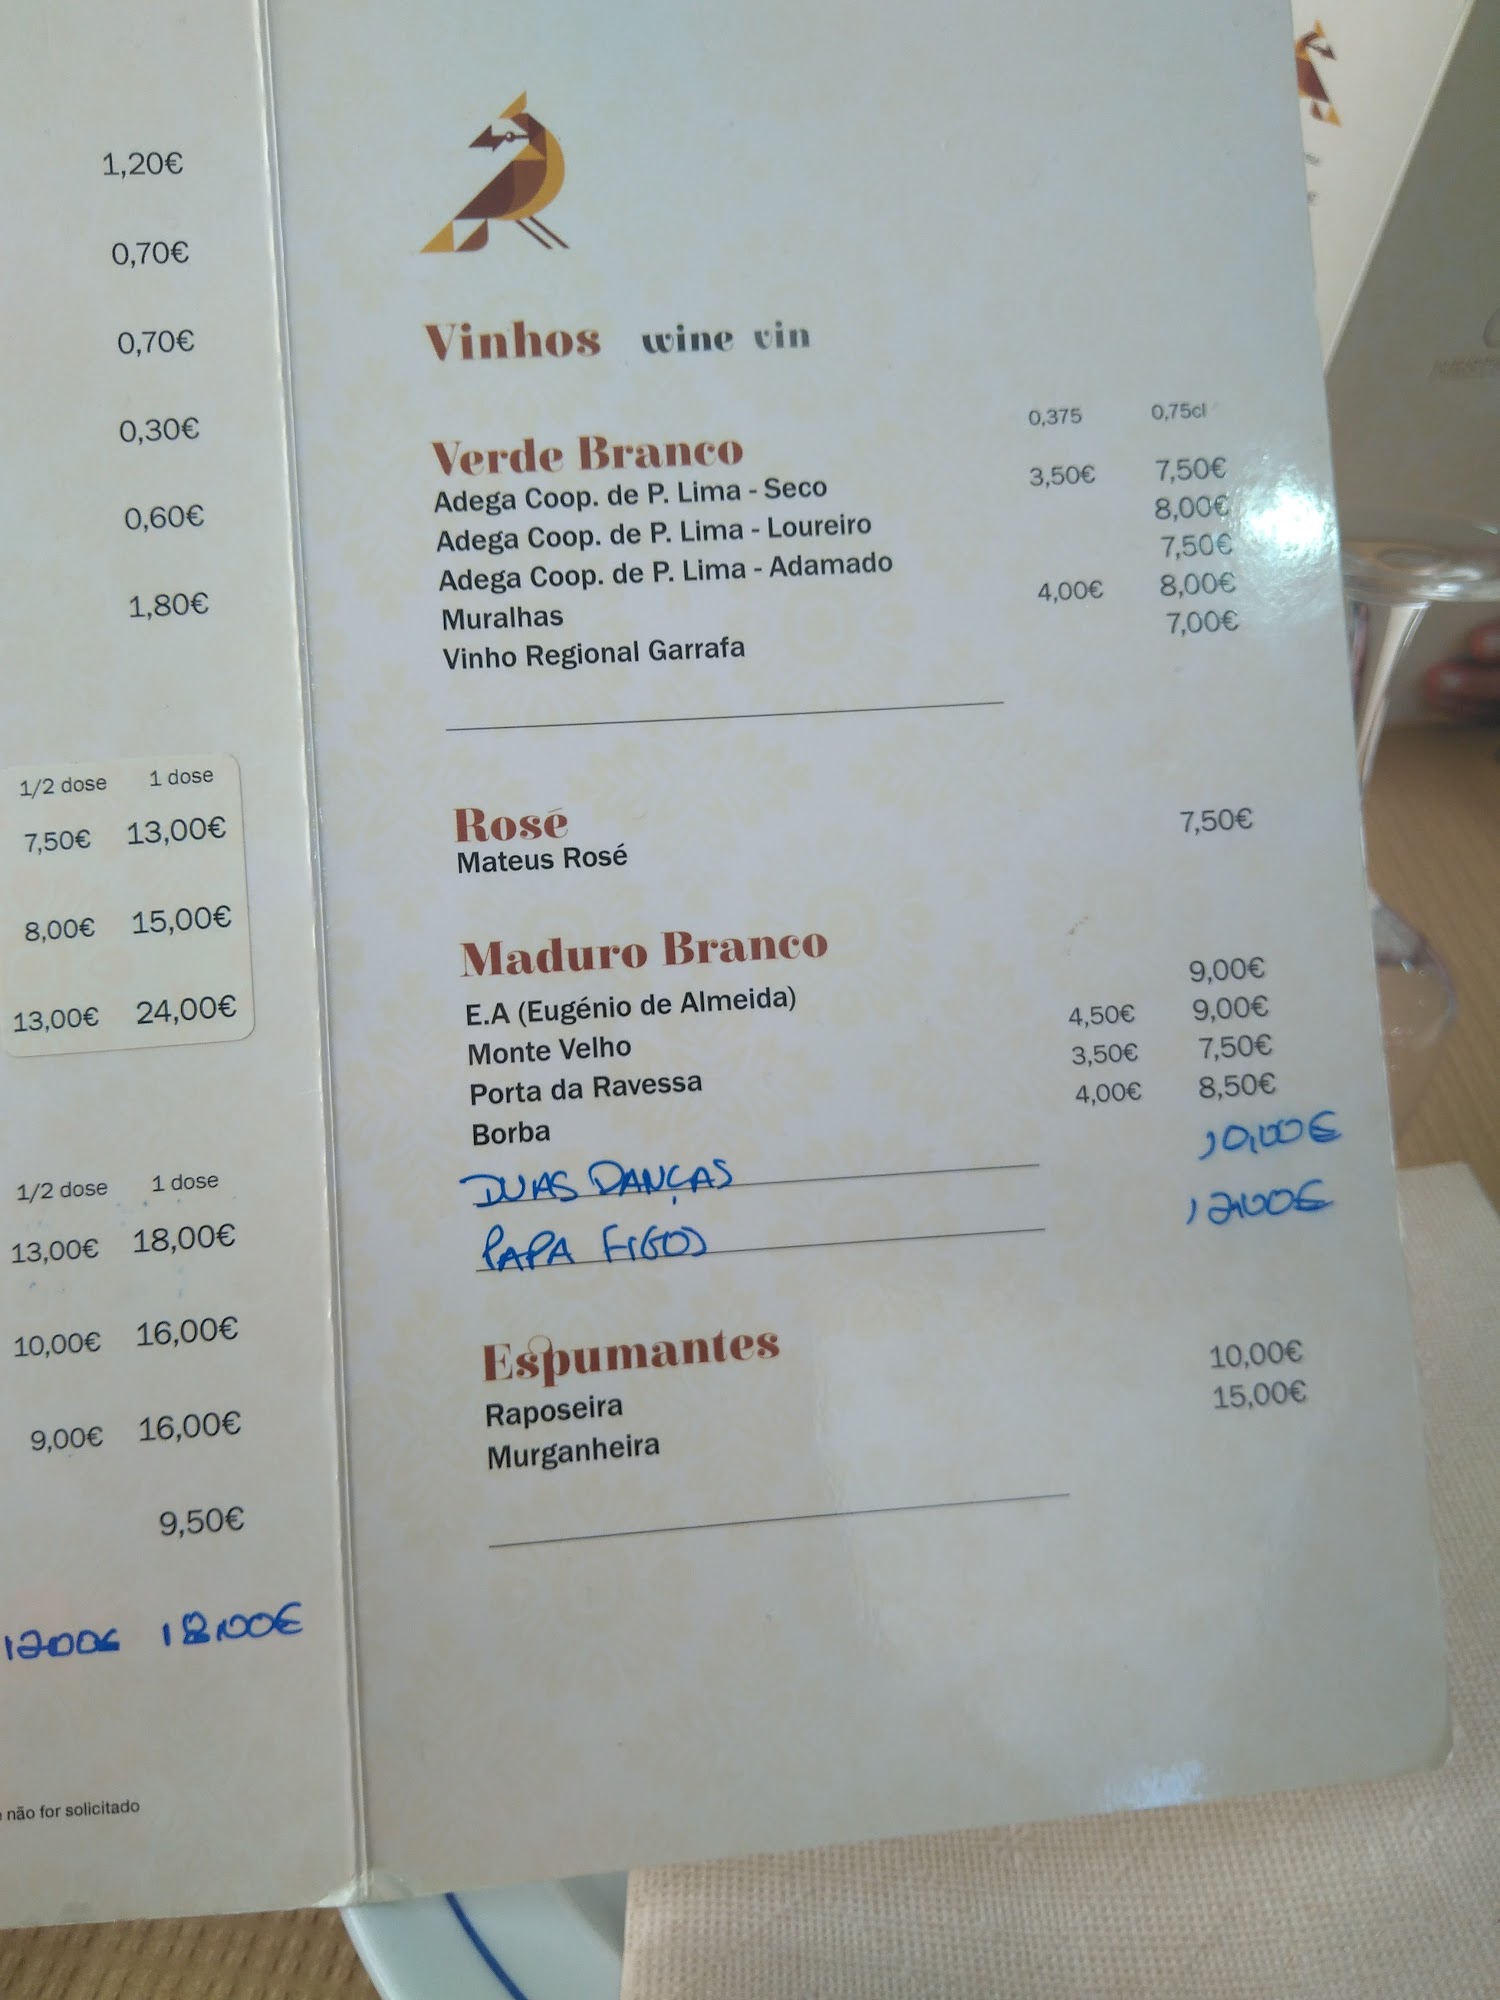 1,20€
0,70€
0,70€
0,30€
0,60€
1,80€
1/2 dose 1 dose
7,50€ 13,00€
8,00€ 15,00€
13,00€ 24,00€
1/2 dose 1 dose
13,00€ 18,00€
10,00€ 16,00€
9,00€ 16,00€
9,50€
12,00€ 18,00€
não for solicitado
Vinhos wine vin
0,375 0,75cl
Verde Branco
Adega Coop. de P. Lima - Seco 3,50€ 7,50€
Adega Coop. de P. Lima - Loureiro 8,00€
Adega Coop. de P. Lima - Adamado 7,50€
Muralhas 4,00€ 8,00€
Vinho Regional Garrafa 7,00€
Rosé
Mateus Rosé 7,50€
Maduro Branco
E.A (Eugénio de Almeida) 9,00€
Monte Velho 4,50€ 9,00€
Porta da Ravessa 3,50€ 7,50€
Borba 4,00€ 8,50€
DUAS DANÇAS 10,00€
PAPA FIGOS 12,00€
Espumantes
Raposeira 10,00€
Murganheira 15,00€